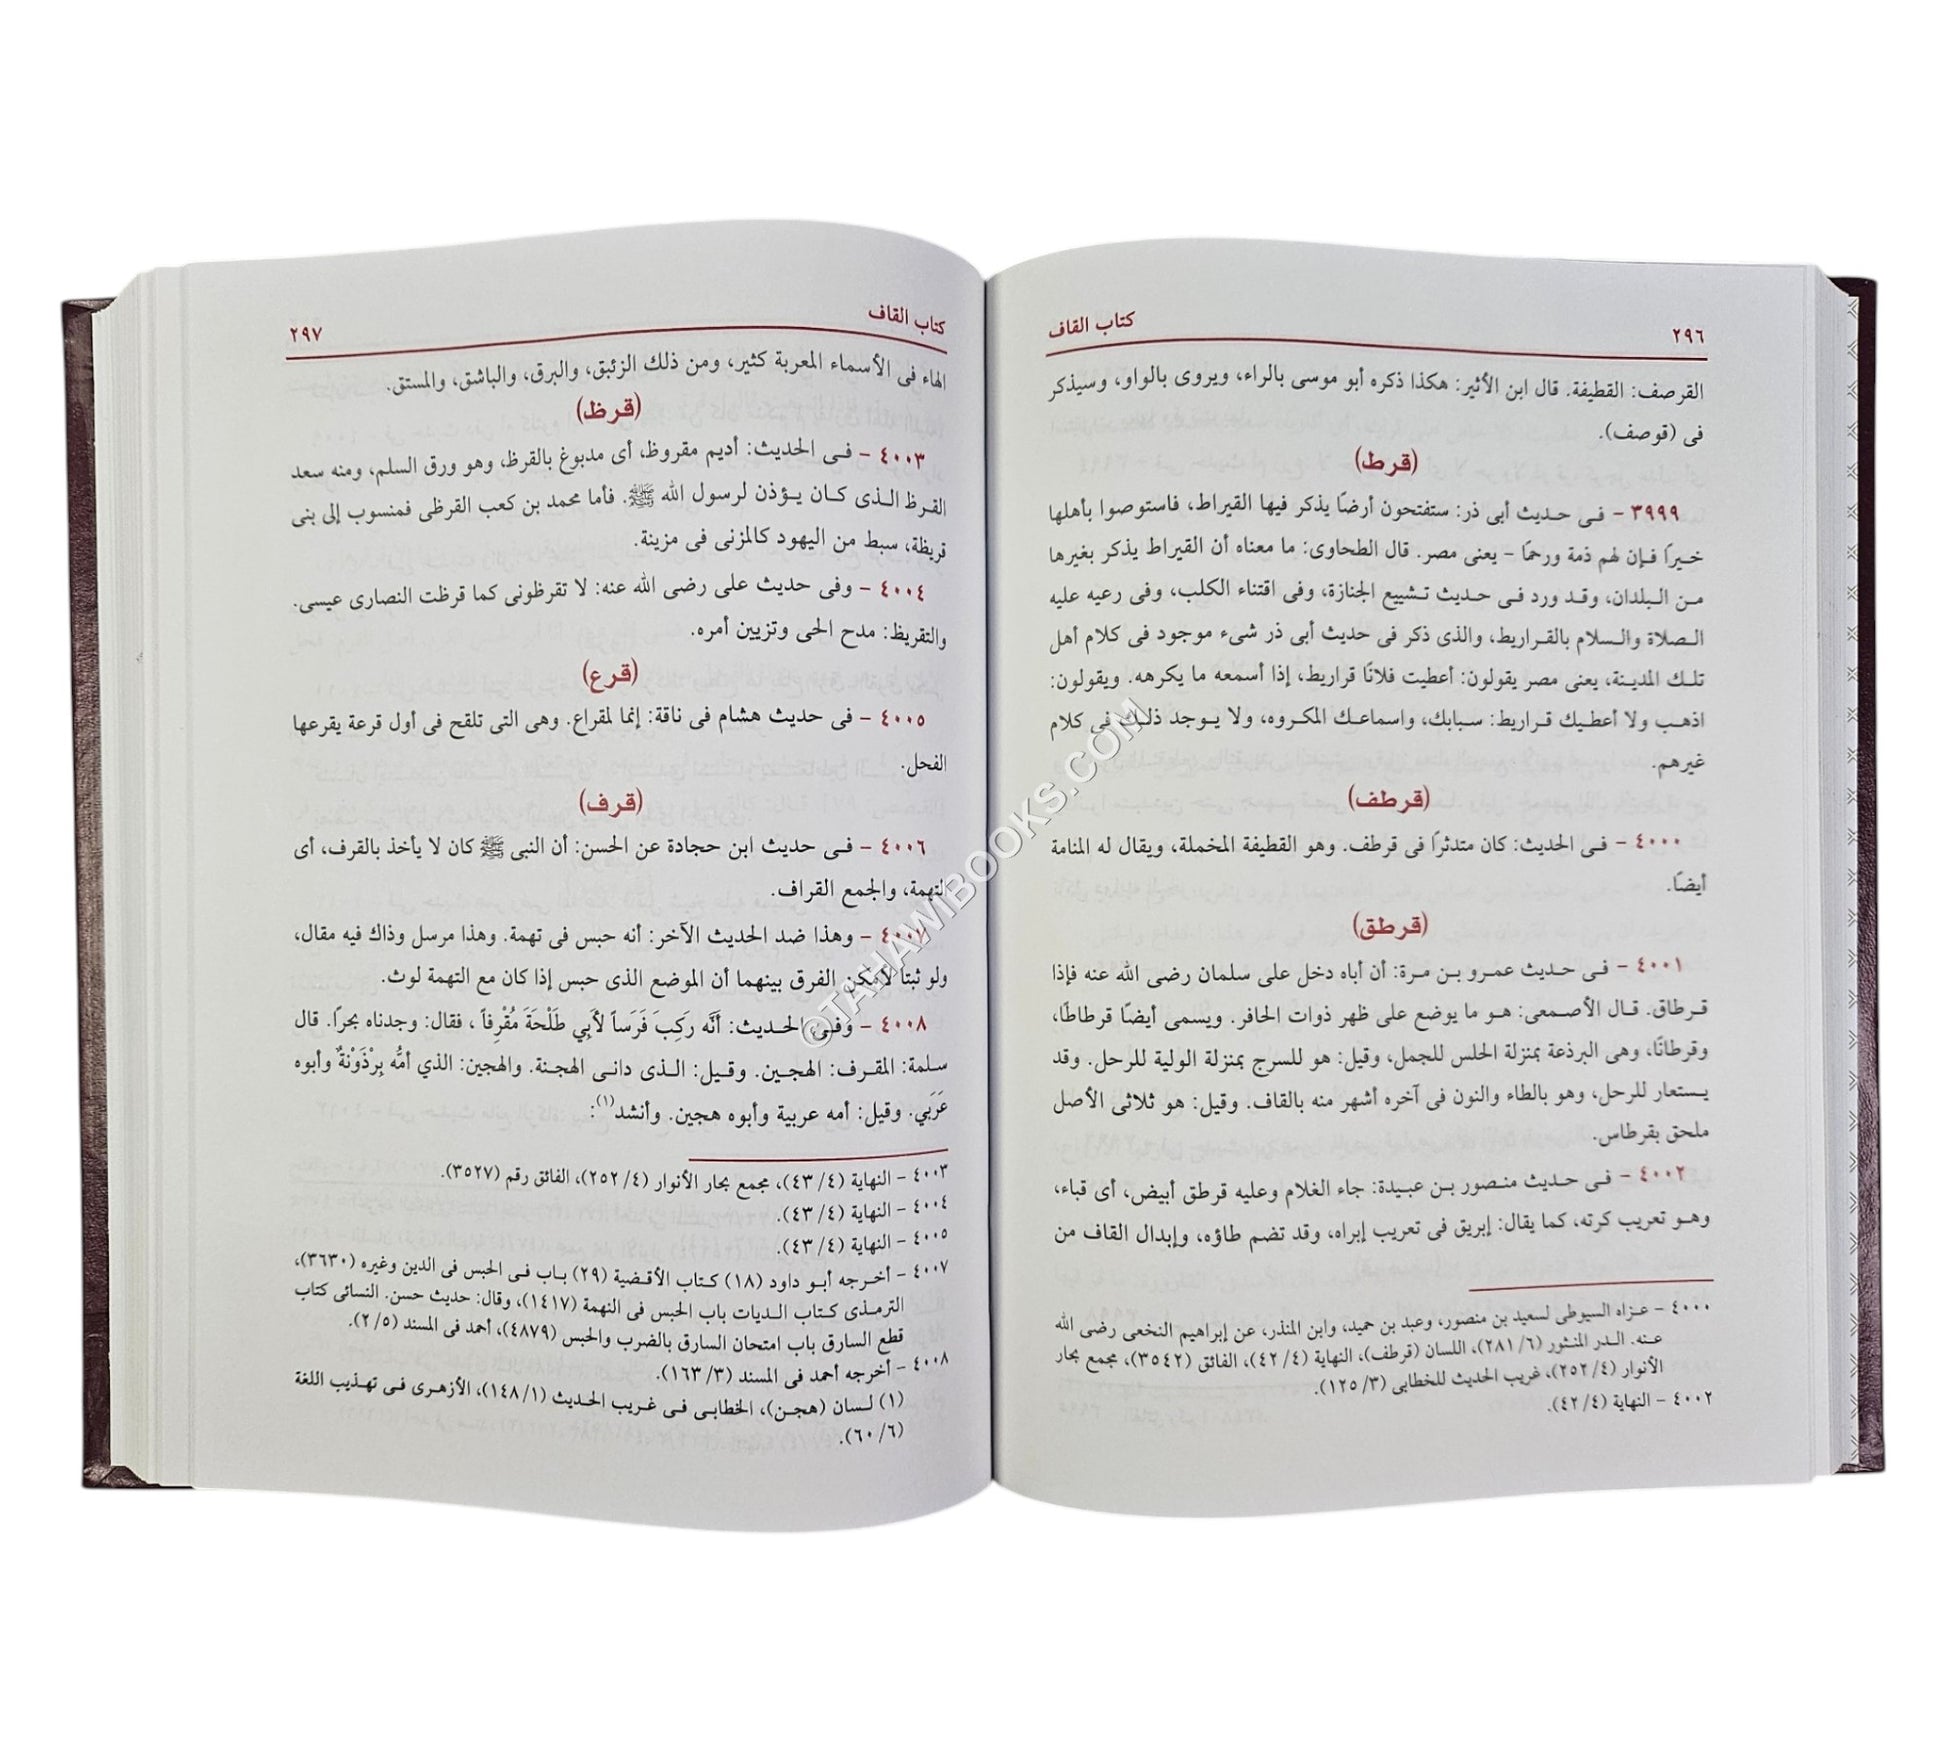 ٢٩٦
كتاب القاف
القرصف: القطيفة. قال ابن الأثير: هكذا ذكره أبو موسى بالراء، ويروى بالواو، وسيذكر
فى (قوصف).
(قرط)
٣٩٩٩ – فى حديث أبى ذر: ستفتحون أرضًا يذكر فيها القيراط، فاستوصوا بأهلها
خيرًا فإن لهم ذمة ورحمًا – يعنى مصر. قال الطحاوى: ما معناه أن القيراط يذكر بغيرها
من البلدان، وقد ورد فى حديث تشييع الجنازة، وفى اقتناء الكلب، وفى رعيه عليه
الصلاة والسلام بالقراريط، والذى ذكر فى حديث أبى ذر شىء موجود فى كلام أهل
تلك المدينة، يعنى مصر يقولون: أعطيت فلانًا قراريط، إذا أسمعه ما يكرهه. ويقولون:
اذهب ولا أعطيك قراريط: سبابك، واسماعك المكروه، ولا يوجد ذلك فى كلام
غيرهم.
(قرطف)
٤٠٠٠ – فى الحديث: كان متدثرًا فى قرطف. وهو القطيفة المخملة، ويقال له المنامة
أيضًا.
(قرطق)
٤٠٠١ – فى حديث عمرو بن مرة: أن أباه دخل على سلمان رضى الله عنه فإذا
قرطاق. قال الأصمعى: هو ما يوضع على ظهر ذوات الحافر. ويسمى أيضًا قرطاطًا،
وقرطانًا، وهى البرذعة بمنزلة الحلس للجمل، وقيل: هو للسرج بمنزلة الولية للرحل. وقد
يستعار للرحل، وهو بالطاء والنون فى آخره أشهر منه بالقاف. وقيل: هو ثلاثى الأصل
ملحق بقرطاس.
٤٠٠٢ – فى حديث منصور بن عبيدة: جاء الغلام وعليه قرطق أبيض، أى قباء،
وهو تعريب كرته، كما يقال: إبريق فى تعريب إبراه، وقد تضم طاؤه، وإبدال القاف من
٤٠٠٠ – عزاه السيوطى لسعيد بن منصور، وعبد بن حميد، وابن المنذر، عن إبراهيم النخعى رضى الله
عنه. الدر المنثور (٢٨١/٦)، اللسان (قرطف)، النهاية (٤٢/٤)، الفائق (٣٥٤٢)، مجمع بحار
الأنوار (٢٥٢/٤)، غريب الحديث للخطابى (١٢٥/٣).
٤٠٠٢ – النهاية (٤٢/٤).
كتاب القاف
٢٩٧
الهاء فى الأسماء المعربة كثير، ومن ذلك الزئبق، والبرق، والباشق، والمستق.
(قرظ)
٤٠٠٣ – فى الحديث: أديم مقروظ، أى مدبوغ بالقرظ، وهو ورق السلم، ومنه سعد
القرظ الذى كان يؤذن لرسول الله ﷺ. فأما محمد بن كعب القرظى فمنسوب إلى بنى
قريظة، سبط من اليهود كالمزنى فى مزينة.
٤٠٠٤ – وفى حديث على رضى الله عنه: لا تقرظونى كما قرظت النصارى عيسى.
والتقريظ: مدح الحى وتزيين أمره.
(قرع)
٤٠٠٥ – فى حديث هشام فى ناقة: إنما لمقراع. وهى التى تلقح فى أول قرعة يقرعها
الفحل.
(قرف)
٤٠٠٦ – فى حديث ابن حجادة عن الحسن: أن النبى ﷺ كان لا يأخذ بالقرف، أى
التهمة، والجمع القراف.
٤٠٠٧ – وهذا ضد الحديث الآخر: أنه حبس فى تهمة. وهذا مرسل وذاك فيه مقال،
ولو ثبتا لأمكن الفرق بينهما أن الموضع الذى حبس إذا كان مع التهمة لوث.
٤٠٠٨ – وفى الحديث: أَنَّه رَكِبَ فَرَساً لأَبِي طَلْحَةَ مُقْرِفاً ، فقال: وجدناه بحرًا. قال
سلمة: المقرف: الهجين. وقيل: الذى دانى الهجنة. والهجين: الذي أمُّه بِرْذَوْنةٌ وأبوه
عَرَبي. وقيل: أمه عربية وأبوه هجين. وأنشد(١):
٤٠٠٣ – النهاية (٤٣/٤)، مجمع بحار الأنوار (٢٥٢/٤)، الفائق رقم (٣٥٢٧).
٤٠٠٤ – النهاية (٤٣/٤).
٤٠٠٥ – النهاية (٤٣/٤).
٤٠٠٧ – أخرجه أبو داود (١٨) كتاب الأقضية (٢٩) باب فى الحبس فى الدين وغيره (٣٦٣٠)،
الترمذى كتاب الديات باب الحبس فى التهمة (١٤١٧)، وقال: حديث حسن. النسائى كتاب
قطع السارق باب امتحان السارق بالضرب والحبس (٤٨٧٩)، أحمد فى المسند (٢/٥).
٤٠٠٨ – أخرجه أحمد فى المسند (١٦٣/٣).
(١) لسان (هجن)، الخطابى فى غريب الحديث (١٤٨/١)، الأزهرى فى تهذيب اللغة
(٦٠/٦).
©TAHAWIBOOKS.COM